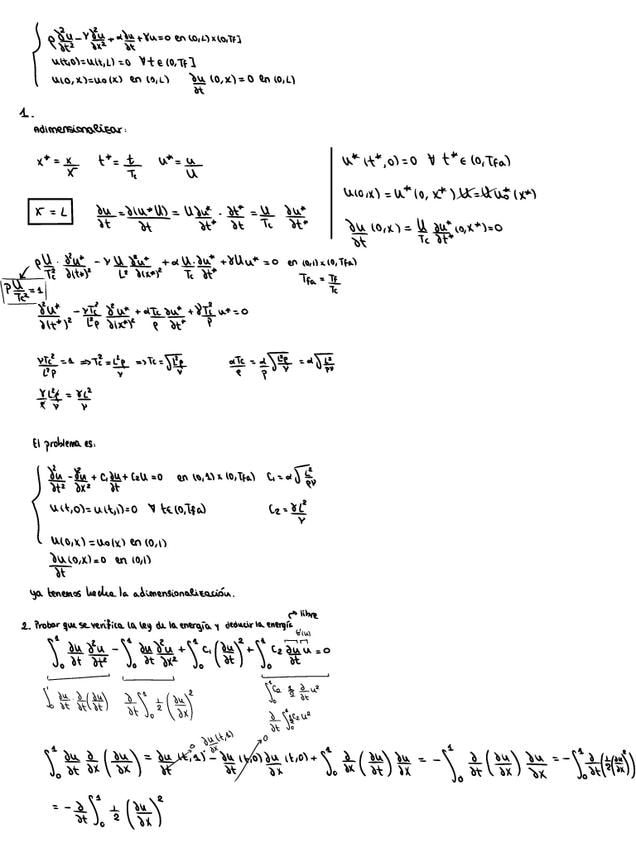 ρ ∂²u/∂t² - ν ∂²u/∂x² + α ∂u/∂t + γu = 0 en (0,L)x(0,Tf]
u(t,0)=u(t,L)=0 ∀t∈(0,Tf]
u(0,x)=u₀(x) en (0,L) ∂u/∂t (0,x)=0 en (0,L)
1.
Adimensionalizar:
x* = x/X t* = t/Tc u* = u/U
X = L ∂u/∂t = ∂(u*U)/∂t = U ∂u*/∂t* · ∂t*/∂t = U/Tc ∂u*/∂t*
u*(t*,0)=0 ∀ t*∈(0,Tfa)
u(0,x)=u*(0,x*)U=U u₀*(x*)
∂u/∂t (0,x) = U/Tc ∂u*/∂t* (0,x*)=0
ρ U/Tc² · ∂²u*/∂(t*)² - ν U/L² ∂²u*/∂(x*)² + α U/Tc · ∂u*/∂t* + γUu* = 0 en (0,1)x(0,Tfa)
Tfa = Tf/Tc
ρ U/Tc² = 1
∂²u*/∂(t*)² - νTc²/L²ρ ∂²u*/∂(x*)² + αTc/ρ ∂u*/∂t* + γTc²/ρ u* = 0
νTc²/L²ρ = 1 ⇒ Tc² = L²ρ/ν ⇒ Tc = √(L²ρ/ν) αTc/ρ = α/ρ √(L²ρ/ν) = α√(L²/ρν)
γ/ρ L²ρ/ν = γL²/ν
El problema es:
∂²u/∂t² - ∂²u/∂x² + C₁ ∂u/∂t + C₂u = 0 en (0,1)x(0,Tfa) C₁ = α√(L²/ρν)
u(t,0)=u(t,1)=0 ∀ t∈(0,Tfa) C₂ = γL²/ν
u(0,x)=u₀(x) en (0,1)
∂u/∂t (0,x)=0 en (0,1)
ya tenemos hecha la adimensionalización.
2. Probar que se verifica la ley de la energía y deducir la energía libre
∫₀¹ ∂u/∂t ∂²u/∂t² - ∫₀¹ ∂u/∂t ∂²u/∂x² + ∫₀¹ C₁(∂u/∂t)² + ∫₀¹ C₂ ∂u/∂t u = 0
∫ ∂u/∂t · ∂/∂t(∂u/∂t) ∂/∂t ∫₀¹ ½(∂u/∂x)² ∫₀¹ C₂ ½ ∂/∂t u²
∂/∂t ∫₀¹ ½C₂u²
∫₀¹ ∂u/∂t ∂/∂x(∂u/∂x) = ∂u/∂t (t,1) ∂u/∂x (t,1) - ∂u/∂t (t,0) ∂u/∂x (t,0) + ∫₀¹ ∂/∂x(∂u/∂t) ∂u/∂x = -∫₀¹ ∂/∂t(∂u/∂x) ∂u/∂x = -∫₀¹ ∂/∂t(½(∂u/∂x)²)
= -∂/∂t ∫₀¹ ½(∂u/∂x)²